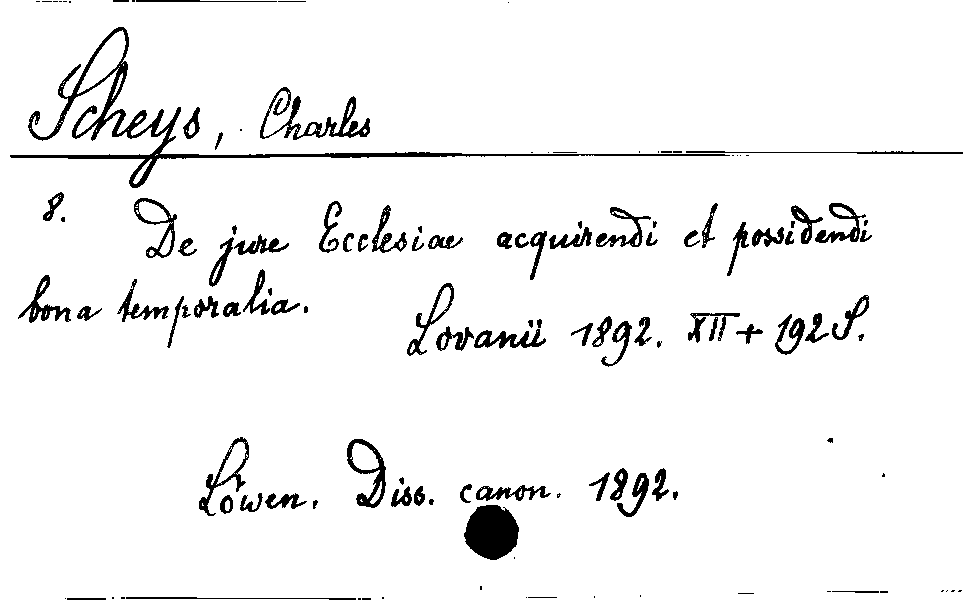 Scheys, Charles
8. De jure Ecclesiae acquirendi et possidendi
bona temporalia.
Lovanii 1892. XII + 192 S.
Löwen. Diss. canon. 1892.